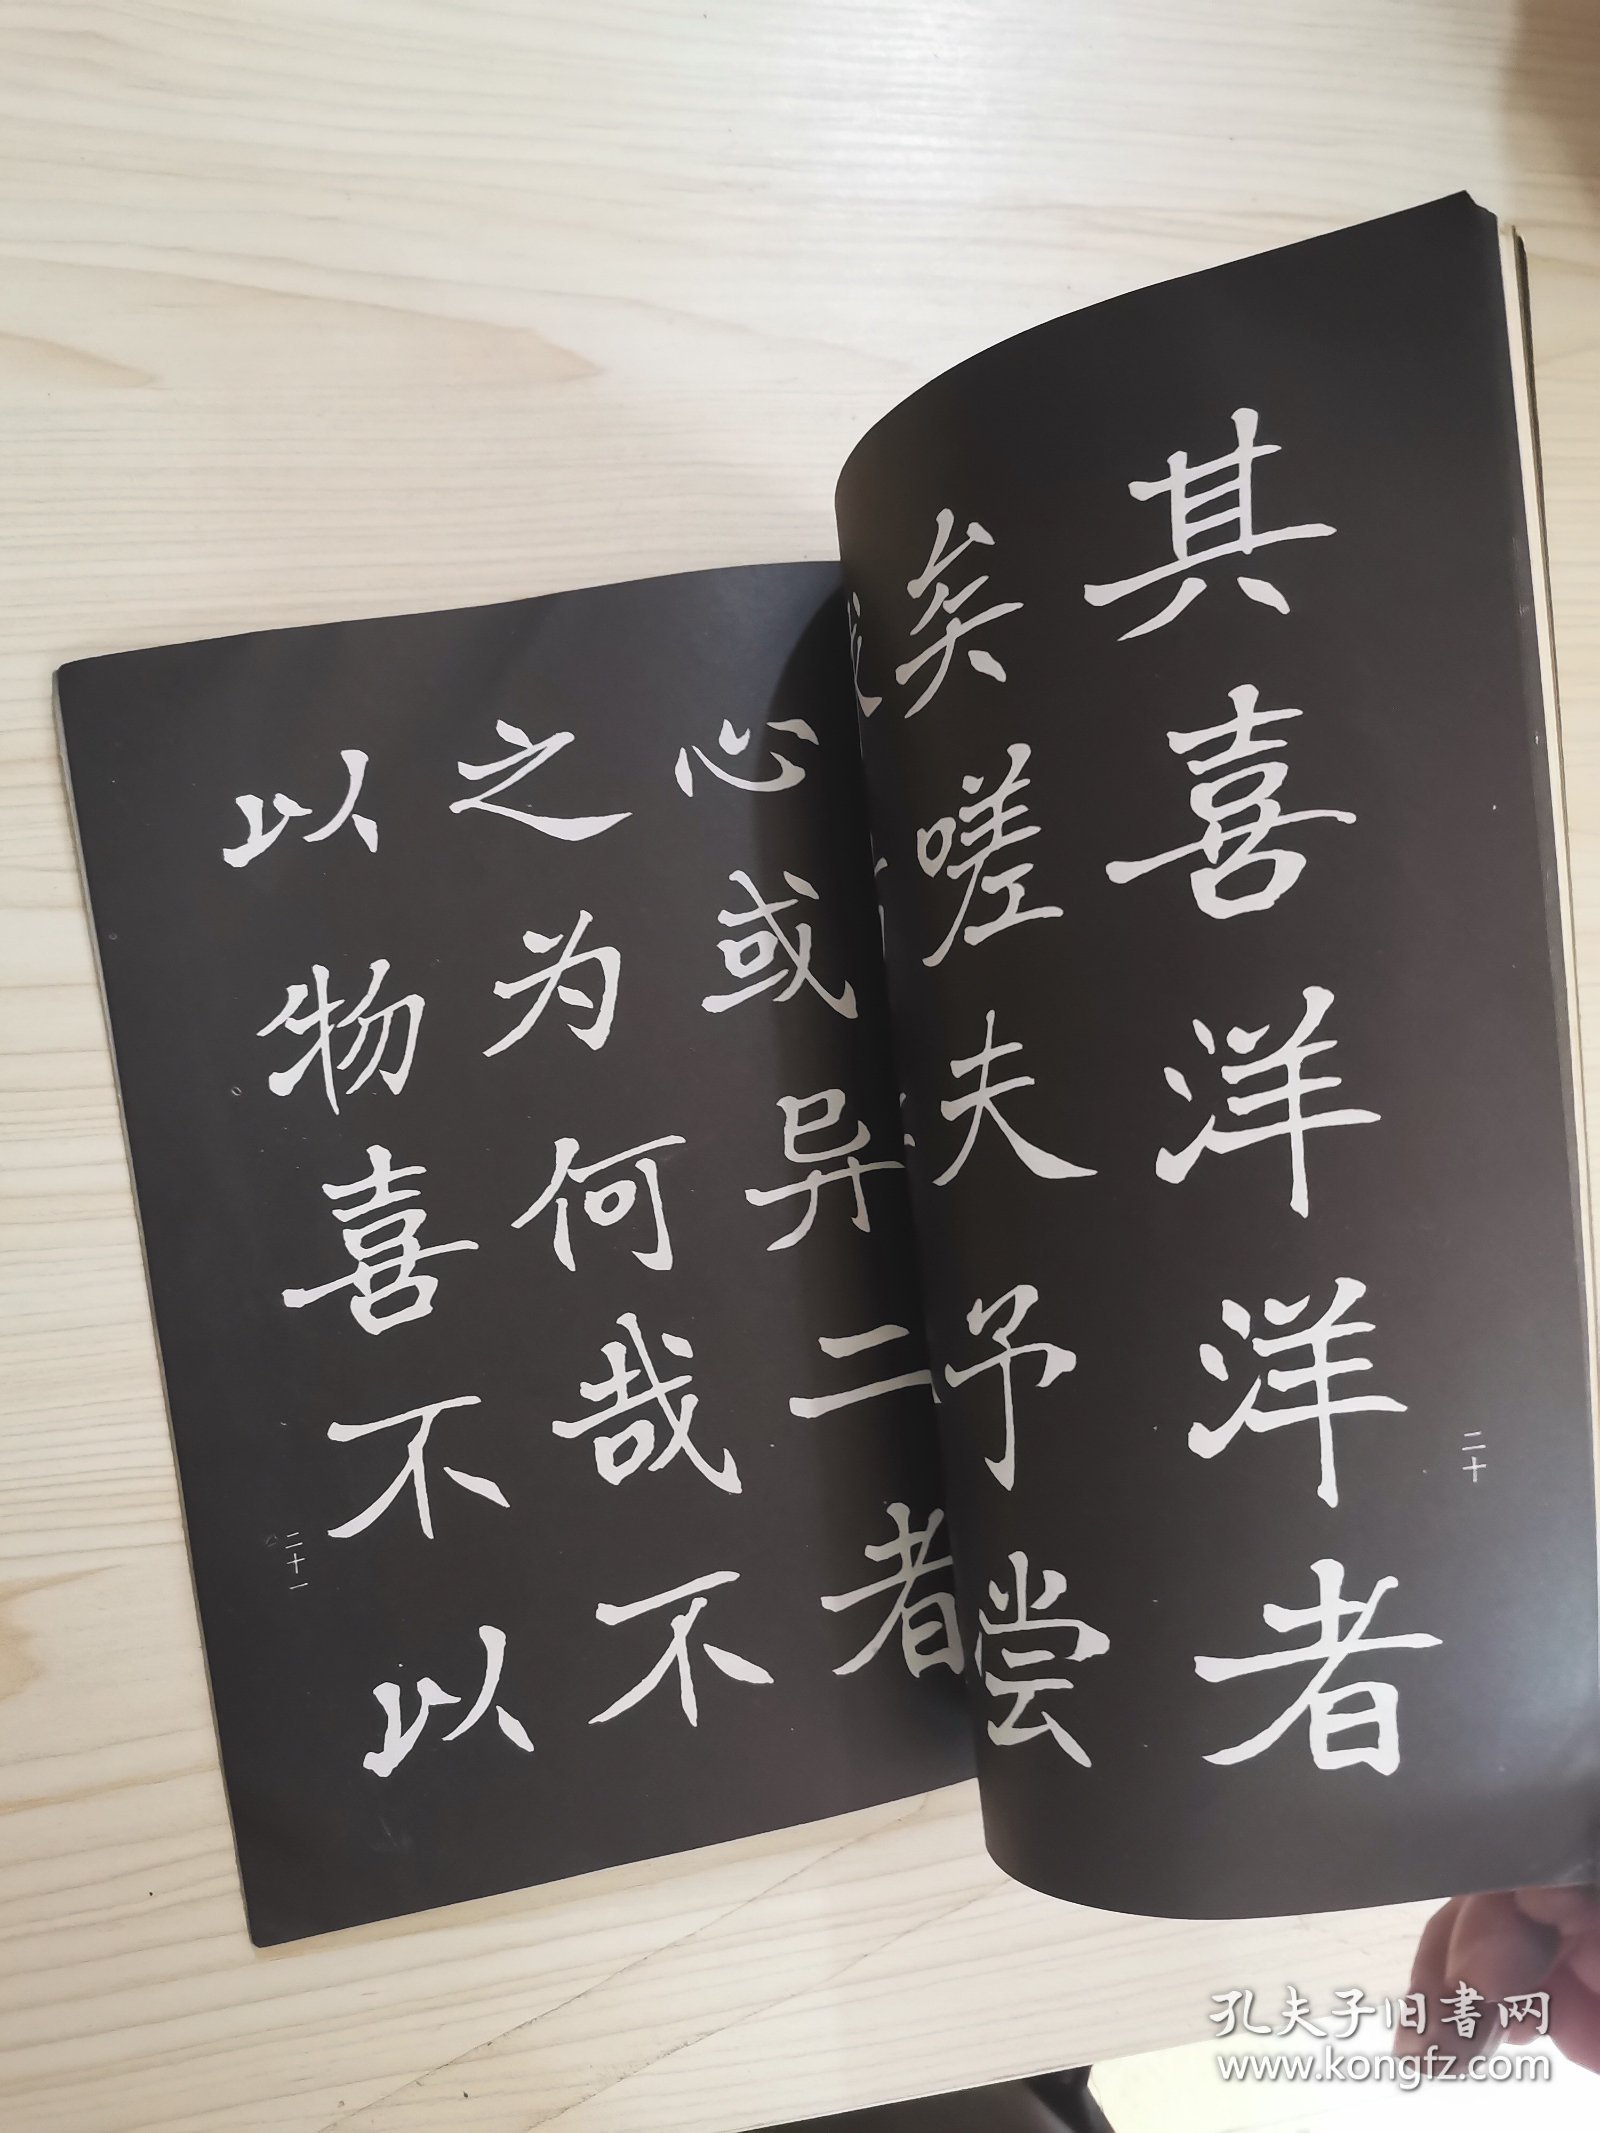 其喜洋洋者
矣嗟夫予尝
二十
心或异二者
之为何哉不
以物喜不以
二十一
孔夫子旧书网
www.kongfz.com